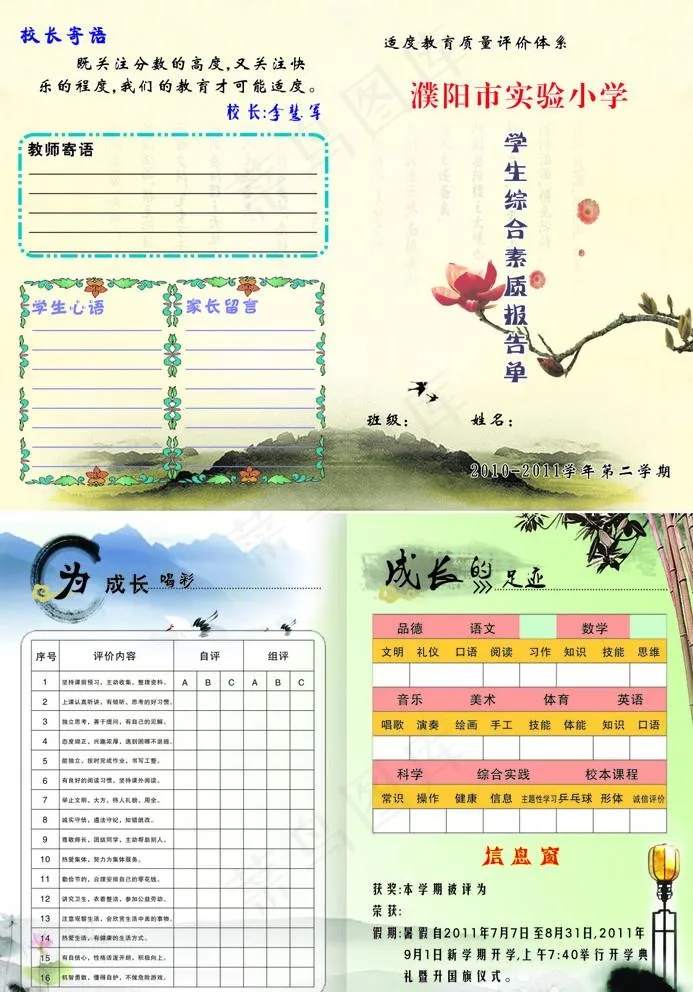 校长寄语
既关注分数的高度,又关注快
乐的程度,我们的教育才可能适度。
校长:李慧军
教师寄语
学生心语
家长留言
适度教育质量评价体系
濮阳市实验小学
学生综合素质报告单
班级: 姓名:
2010-2011学年第二学期
为成长喝彩
序号 评价内容 自评 组评
1 坚持课前预习，主动收集、整理资料。 A B C A B C
2 上课认真听讲，有倾听、思考的好习惯。
3 独立思考，善于提问，有自己的见解。
4 态度端正，兴趣浓厚，遇到困难不退缩。
5 能独立、按时完成作业，书写工整。
6 有良好的阅读习惯，坚持课外阅读。
7 举止文明、大方，待人礼貌、周全。
8 诚实守信，遵法守纪，知错就改。
9 尊敬师长，团结同学，主动帮助别人。
10 热爱集体，努力为集体服务。
11 勤俭节约，合理安排自己的零花钱。
12 讲究卫生，衣着整洁，参加公益劳动。
13 注意观察生活，会欣赏生活中美的事物。
14 热爱生活，有健康的生活方式。
15 有自信心，性格活泼开朗，积极向上。
16 机智勇敢，懂得自护，不做危险游戏。
成长的足迹
品德 语文 数学
文明 礼仪 口语 阅读 习作 知识 技能 思维
音乐 美术 体育 英语
唱歌 演奏 绘画 手工 技能 体能 知识 口语
科学 综合实践 校本课程
常识 操作 健康 信息 主题性学习 乒乓球 形体 诚信评价
信息窗
获奖:本学期被评为
荣获:
假期:暑假自2011年7月7日至8月31日,2011年
9月1日新学期开学,上午7:40举行开学典
礼暨升国旗仪式。